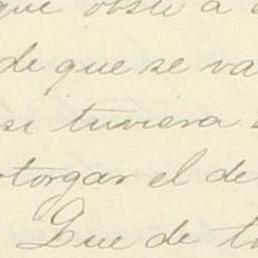 que obste á
de que se va
si tuviera
otorgar el de
Que de t